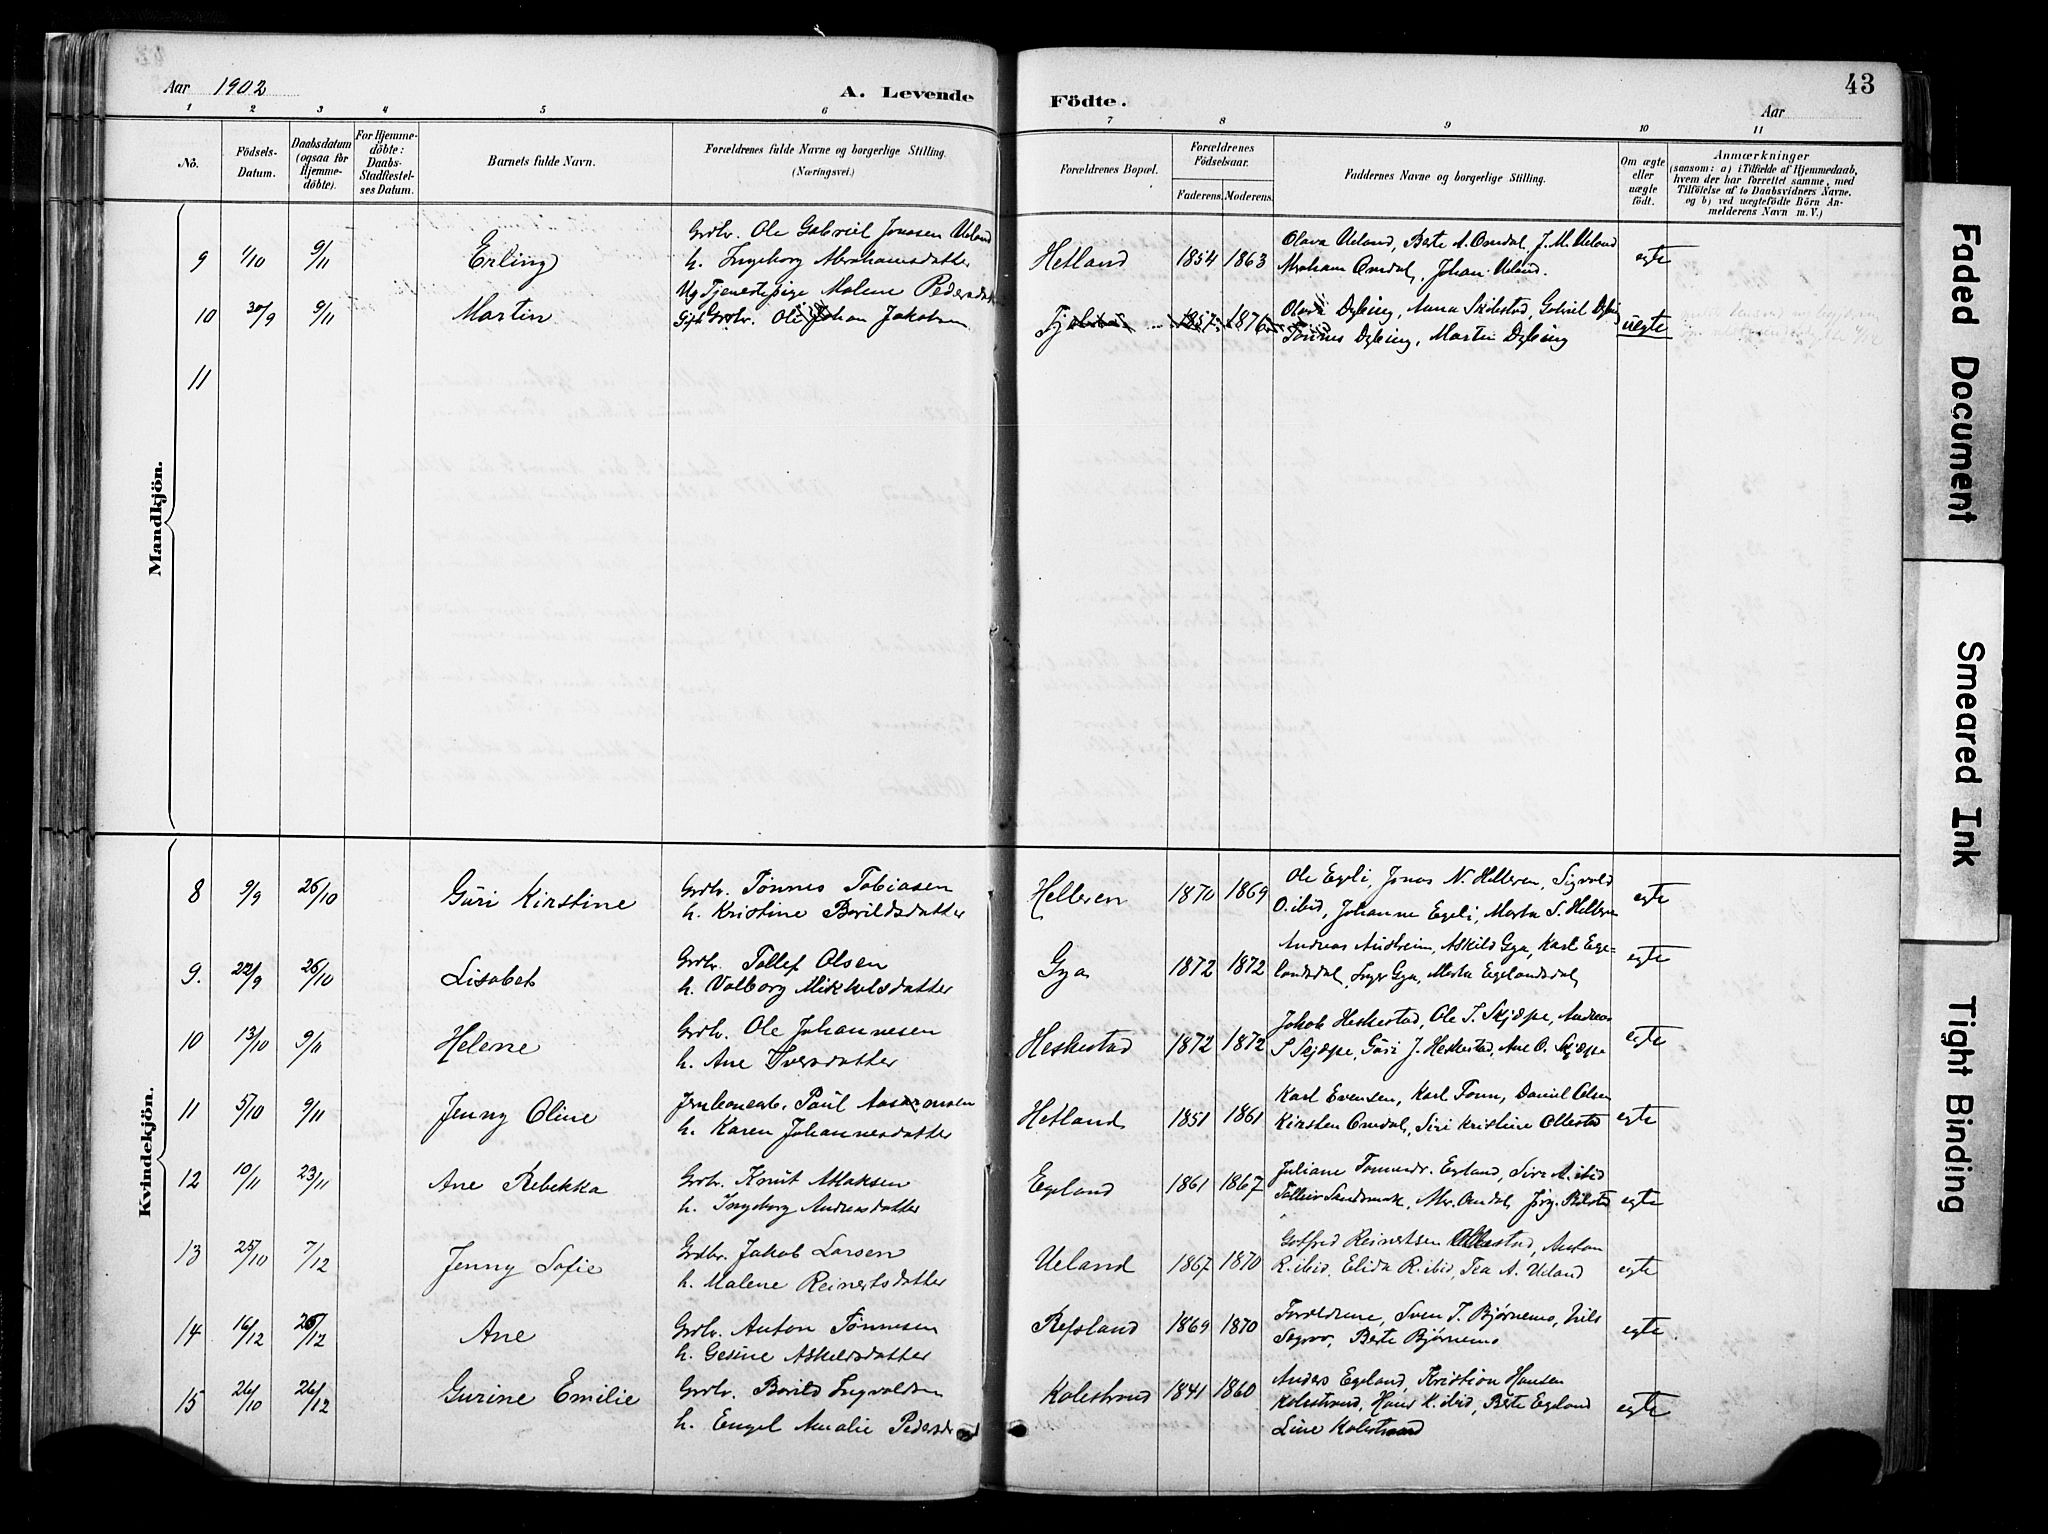 Aar 1902
A. Levende
Födte.
Aar
43
1 2 3 4 5 6 7 8 9 10 11
No.
Födsels-Datum.
Daabsdatum (ogsaa for Hjemme-döbte).
For Hjemme-döbte: Daabs-Stadfestel-ses Datum.
Barnets fulde Navn.
Forældrenes fulde Navne og borgerlige Stilling.
(Næringsvei.)
Forældrenes Bopæl.
Forældrenes Födselsaar.
Faderens. Moderens.
Faddernes Navne og borgerlige Stilling.
Om ægte eller uægte födt.
Anmærkninger
(saasom: a) i Tilfælde af Hjemmedaab, hvem der har forrettet samme, med Tilföielse af to Daabsvidners Navne. og b) ved uægtefödte Börn An-melderens Navn m. V.)
Mandkjön.
Grdbr. Ole Gabriel Jonasen Ueland
9 1/10 9/11 Erling h. Ingeborg Abrahamsdatter Hetland 1854 1863 Olava Ueland, Berte A. Omdal, J. M. Ueland
Abraham Omdal, Johan Ueland. egte
Ug. Tjenestepige Malene Pedersdatter
10 30/9 9/11 Martin Gift Grdbr. Ole Johan Jakobsen 1857 1876 Olava Dybing, Anna Skibestad, Gabriel Dybing
Tönnes Dybing, Martin Dybing uegte
11
Kvindekjön.
8 9/9 26/10 Guri Kirstine Grdbr. Tønnes Tobiasen
h. Kristine Borildsdatter Helleren 1870 1869 Ole Egeli, Jonas N. Helleren, Sigvald
O. ibid, Johanne Egeli, Marta S. Helleren egte
9. 22/9 26/10 Lisabet Grdbr. Tollef Olsen
h. Valborg Mikkelsdatter Gya 1872 1872 Andreas Austreim, Askild Gya, Karl Ege-
landsdal, Inger Gya, Marta Egelandsdal egte
10 13/10 9/11 Helene Grdbr. Ole Johannesen
h. Ane Iversdatter Heskestad 1872 1872 Jakob Heskestad, Ole T. Skjæpe, Andreas
S Skjæpe, Guri J. Heskestad, Ane O. Skjæpe egte
11 5/10 9/11 Jenny Oline Jernbanearb. Paul Aasmonsen
h. Karen Johannesdatter Hetland 1851 1861 Karl Evensen, Karl Tonn, Daniel Olsen
Kirsten Omdal, Siri Kristine Ollestad egte
12 10/11 23/11 Ane Rebekka Grdbr. Knut Aslaksen
h. Ingeborg Andreasdatter Egeland 1861 1867 Juliane Tønnesdr. Egeland, Siri A. ibid
Tolleiv Sandsmark, Abr. Omdal, egte
13 25/10 7/12 Jenny Sofie Grdbr. Jakob Larsen
h. Malene Reinertsdatter Ueland 1867 1870 Gotfred Reinertsen Ollestad, Anton
R. ibid, Elida R. ibid, Tea A. Ueland egte
14 16/12 26/12 Ane Grdbr. Anton Tönnesen
h. Gesine Askeldsdatter Refsland 1869 1870 Foreldrene, Sven T. Bjørnemo, Nils
Berte Bjørnemo egte.
15 26/10 26/12 Gurine Emilie Grdbr. Borild Ingvaldsen
h. Engel Amalie Pedersd Kolestrand 1841 1860 Anders Egeland, Kristian Hansen
Kolestrand, Hans K. ibid, Berte Egeland
Line Kolestrand egte
Faded Document
Smeared Ink
Tight Binding